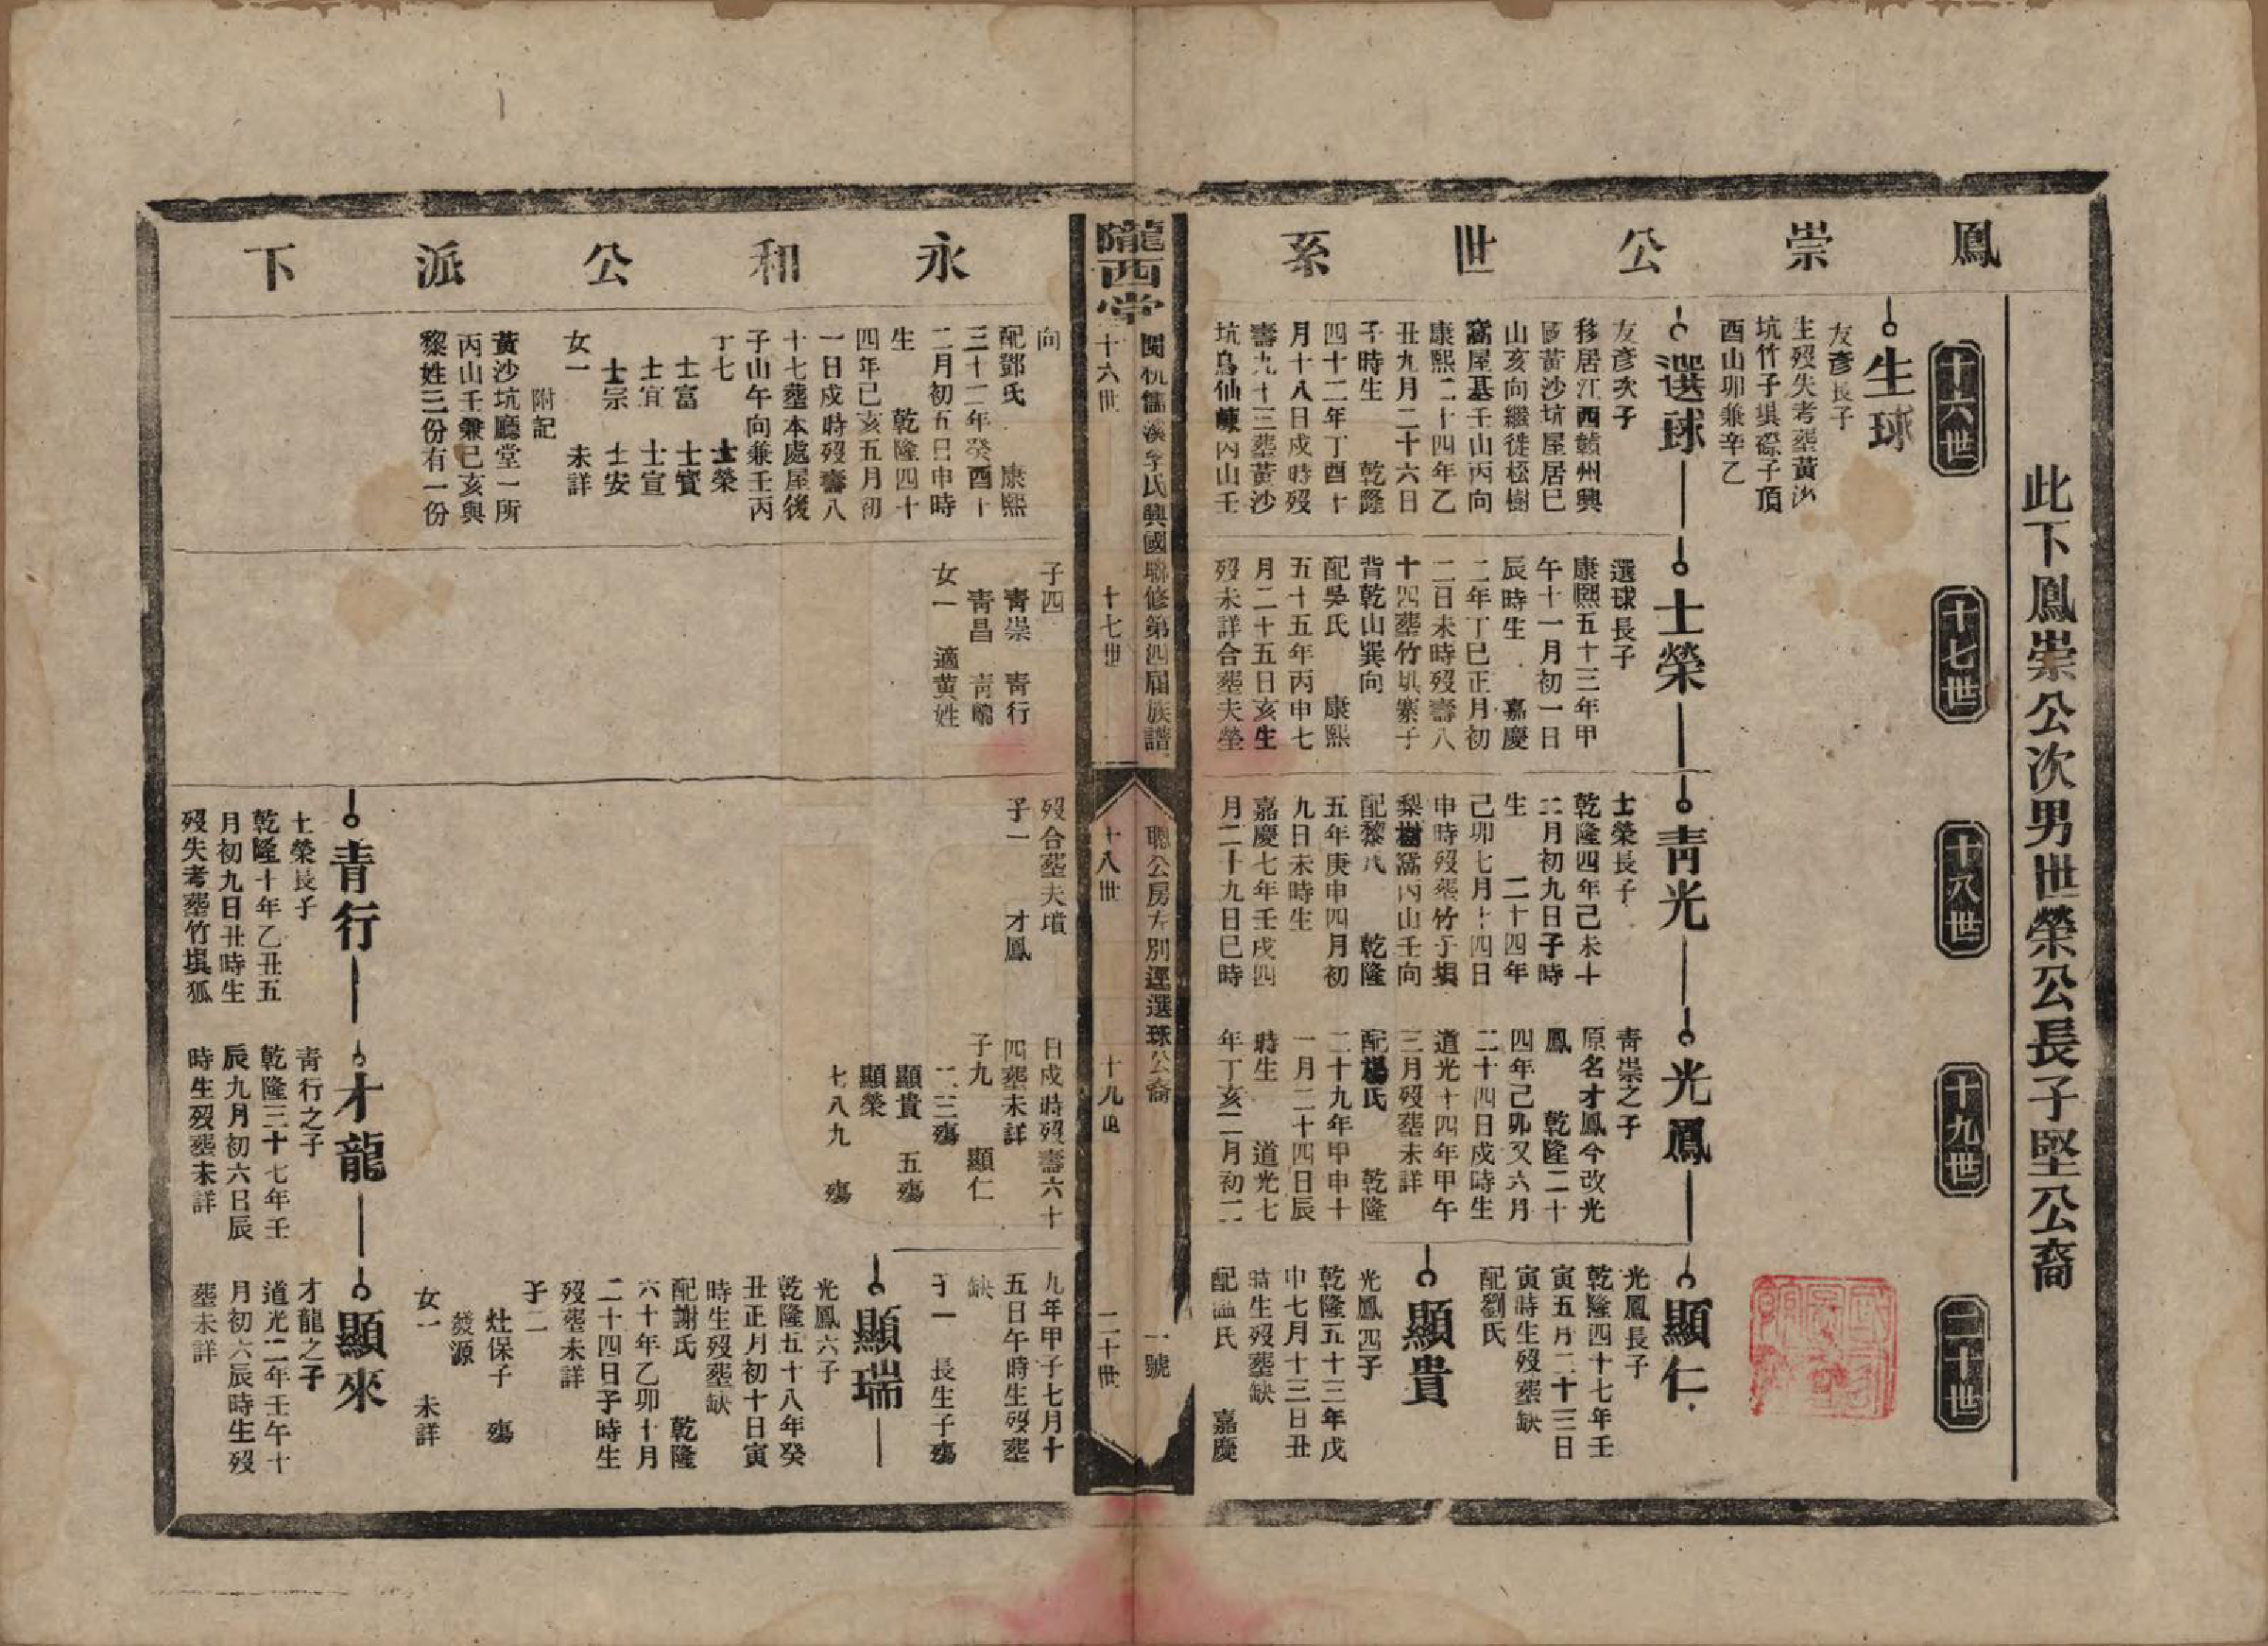 鳳崇公世系
此下鳳崇公次男世榮公長子堅公裔
十六世
十七世
十八世
十九世
二十世
生球
友彥長子
生歿失考葬黃沙
坑竹子垻磜子頂
酉山卯兼辛乙
選球
友彥次子
移居江西贛州興
國黃沙坑屋居巳
山亥向繼徙松樹
窩屋基壬山丙向
康熙二十四年乙
丑九月二十六日
子時生 乾隆
四十二年丁酉十
月十八日戌時歿
壽九十三葬黃沙
坑烏仙崠丙山壬
士榮
選球長子
康熙五十三年甲
午十一月初一日
辰時生 嘉慶
二年丁巳正月初
二日未時歿壽八
十四葬竹垻寨子
背乾山巽向
配吳氏 康熙
五十五年丙申七
月二十五日亥生
歿未詳合葬夫塋
青光
士榮長子
乾隆四年己未十
二月初九日子時
生 二十四年
己卯七月十四日
申時歿葬竹子垻
梨樹窩丙山壬向
配黎氏 乾隆
五年庚申四月初
九日未時生
嘉慶七年壬戌四
月二十九日巳時
光鳳
青崇之子
原名才鳳今改光
鳳 乾隆二十
四年己卯又六月
二十四日戌時生
道光十四年甲午
三月歿葬未詳
配楊氏 乾隆
二十九年甲申十
一月二十四日辰
時生 道光七
年丁亥二月初二
顯仁
光鳳長子
乾隆四十七年壬
寅五月二十三日
寅時生歿葬缺
配劉氏
顯貴
光鳳四子
乾隆五十三年戊
申七月十三日丑
時生歿葬缺
配溫氏 嘉慶
隴西堂
閩杭 溪李氏興國聯修第四屆族譜
聰公房 別遷選球公裔
一號
十六世
十七世
十八世
十九世
二十世
永和公派下
向
配鄧氏 康熙
三十二年癸酉十
二月初五日申時
生 乾隆四十
四年己亥五月初
一日戌時歿壽八
十七葬本處屋後
子山午向兼壬丙
丁七 士榮
士富 士賓
士宜 士宣
士宗 士安
女一 未詳
附記
黃沙坑廳堂一所
丙山壬兼巳亥與
黎姓三份有一份
子四
青崇 青行
青昌 青鳳
女一 適黃姓
歿合葬夫墳
子一 才鳳
日戌時歿壽六十
四葬未詳
子九 顯仁
二三殤
顯貴 五殤
顯榮
七八九 殤
九年甲子七月十
五日午時生歿葬
缺
子一 長生子殤
顯瑞
光鳳六子
乾隆五十八年癸
丑正月初十日寅
時生歿葬缺
配謝氏 乾隆
六十年乙卯十月
二十四日子時生
歿葬未詳
子二
灶保子 殤
發源
女一 未詳
青行
士榮長子
乾隆十年乙丑五
月初九日丑時生
歿失考葬竹垻狐
才龍
青行之子
乾隆三十七年壬
辰九月初六日辰
時生歿葬未詳
顯來
才龍之子
道光二年壬午十
月初六辰時生歿
葬未詳